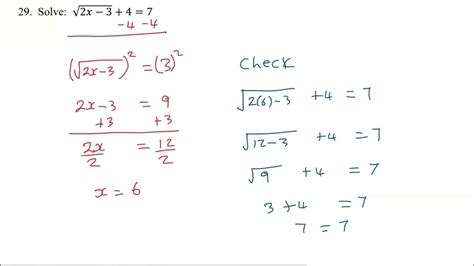 29. Solve: √(2x − 3) + 4 = 7
−4 −4
(√(2x−3))² = (3)²
2x−3 = 9
+3 +3
2x/2 = 12/2
x = 6
Check
√(2(6)−3) +4 = 7
√(12−3) +4 = 7
√9 +4 = 7
3 +4 = 7
7 = 7